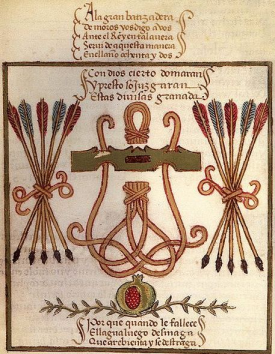 A la gran batizadera
de moros vos digo a vos
Ante el Rey en tal manera
Sera de aquesta manera
En el año ochenta y dos
Con dios cierto domaran
Y presto sojuzgaran
Estas divisas granada
Por que quando le fallece
El agua luego desmaga
Que arebienta y se destraga